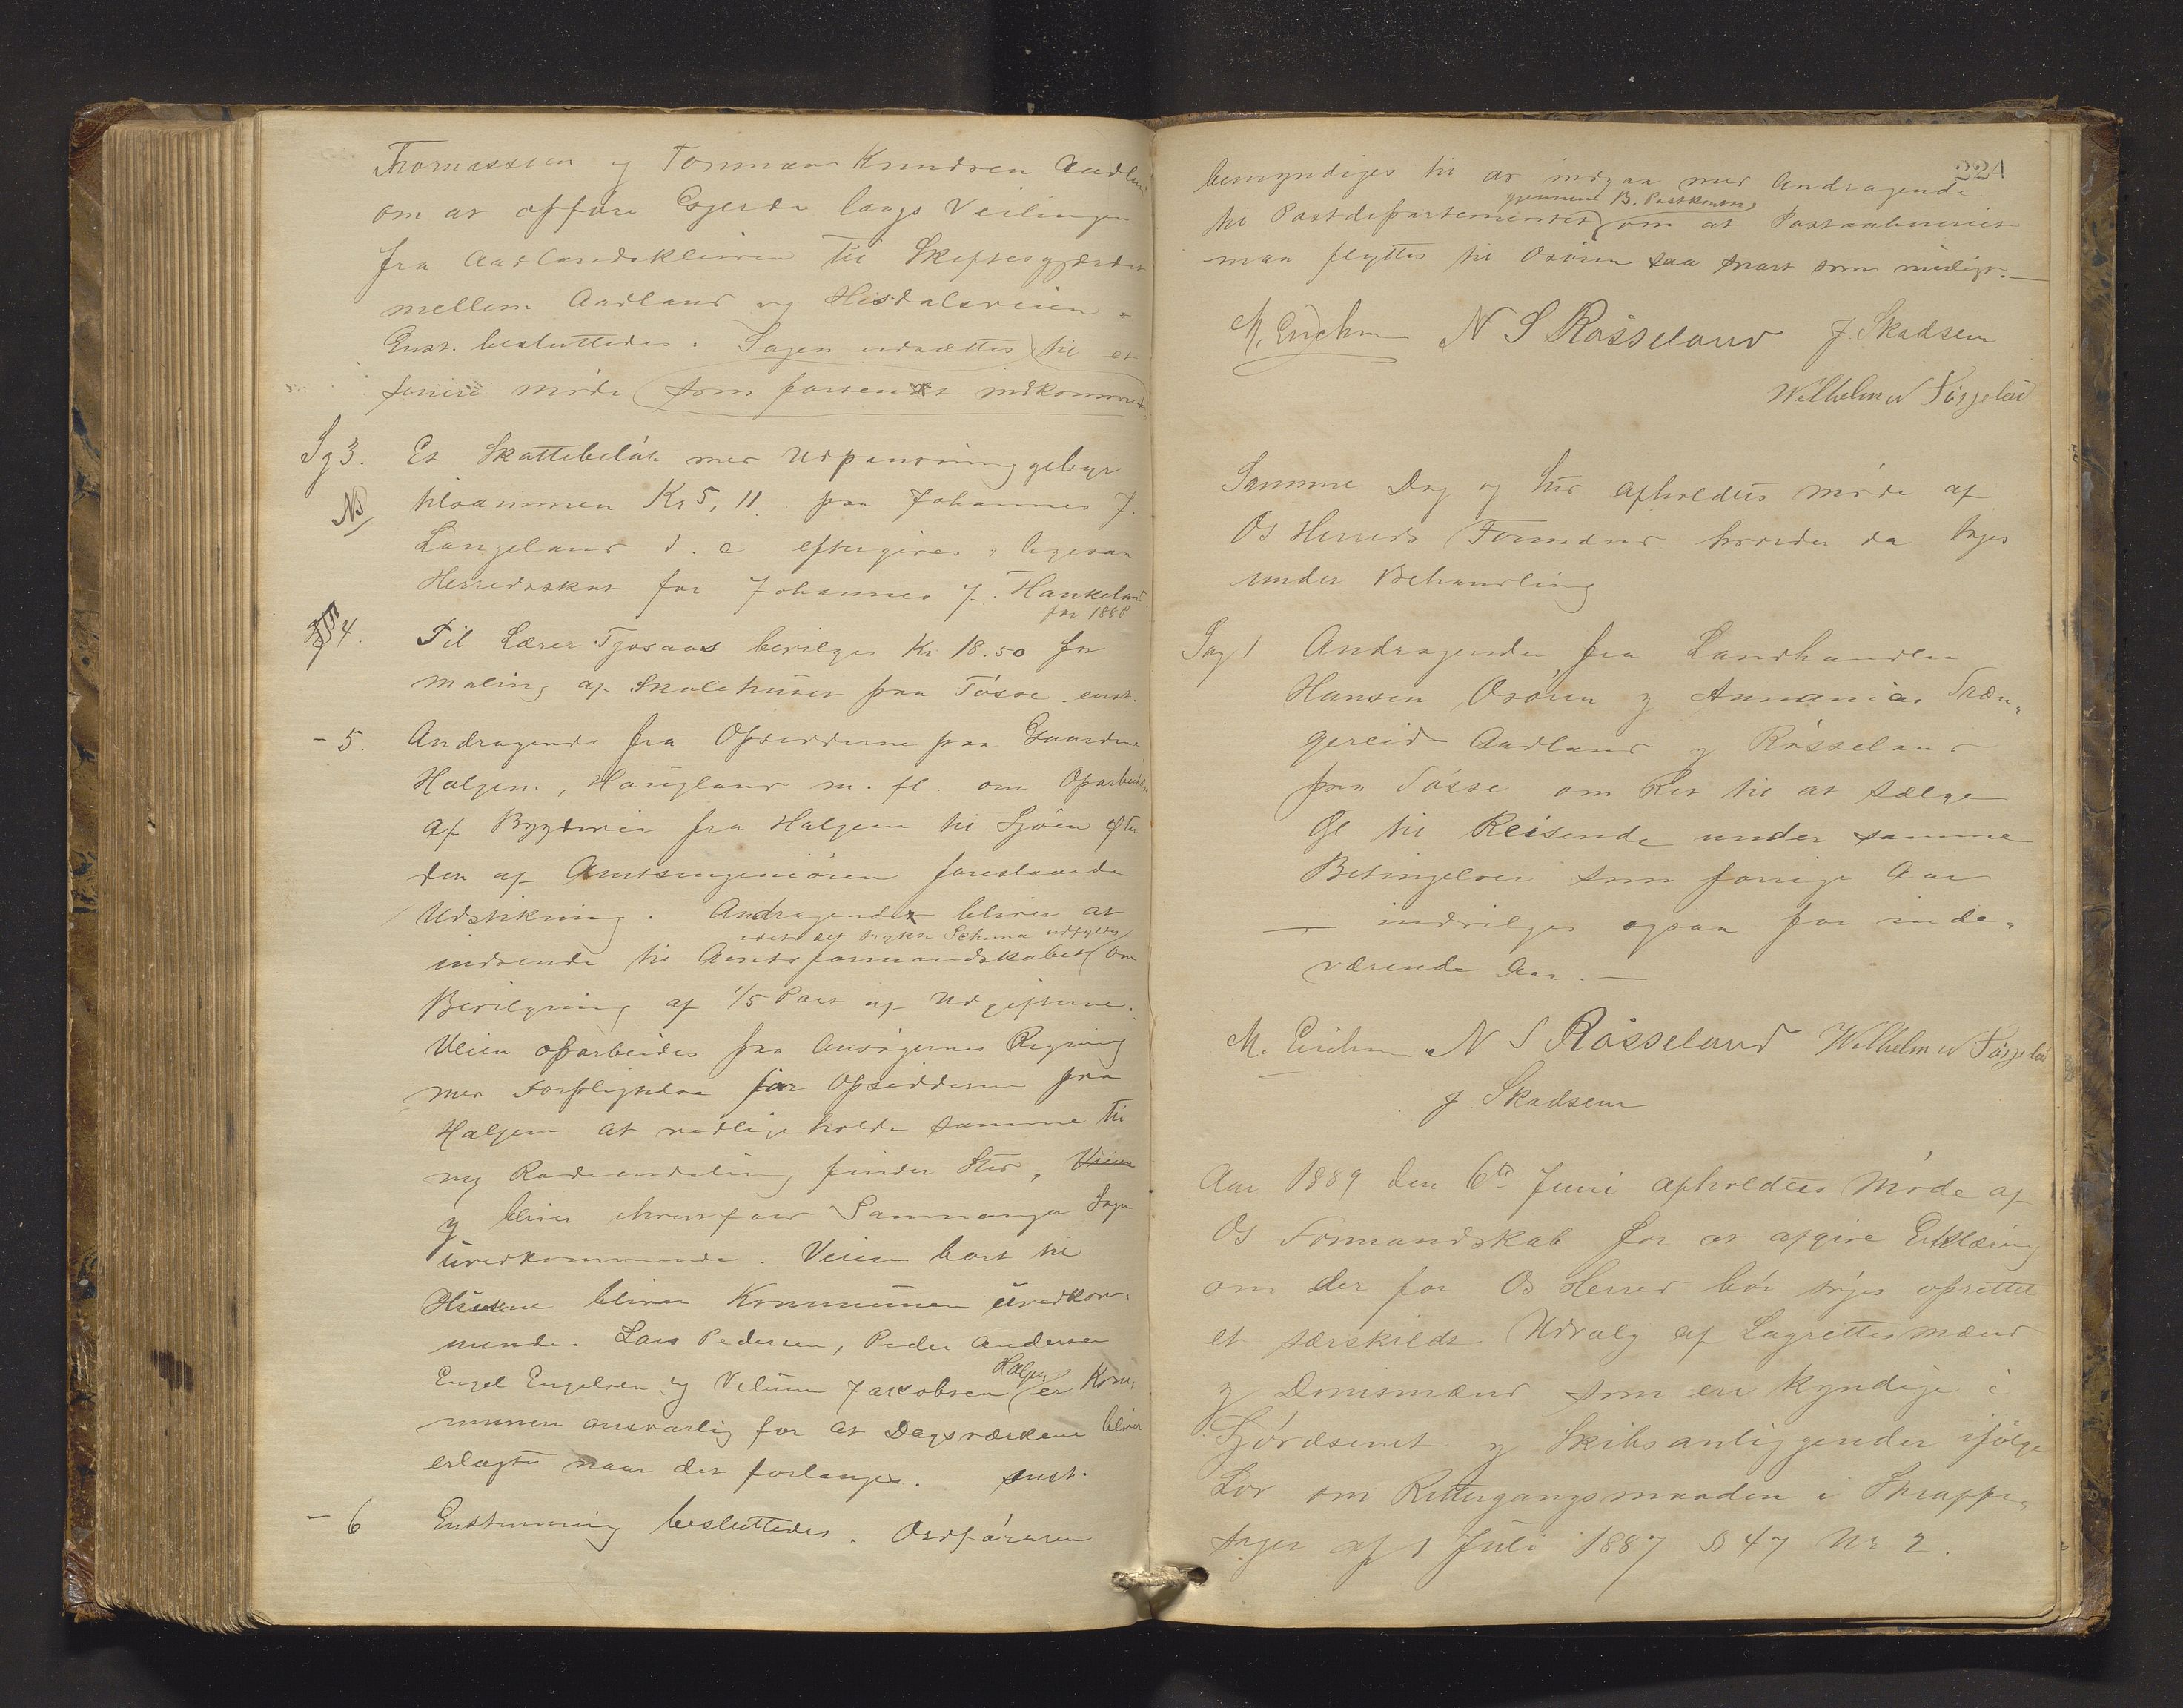 Thomassen og Tormann Knudsen Aadland
om at opføre Gjerde langs Veilinjen
fra Aadlandskleiven til Skiftesgjærdet
mellem Aadland og Hisdalsveien.
Enst. besluttedes. Sagen udsættes til et
senere møde (som forsent indkommen)
Sg 3. Et Skattebeløb med Udpantninggebyr
NB tilsammen Kr 5,11 paa Johannes J.
Langeland d. e eftergives, ligesaa
Herredsskat for Johannes J. Haukeland
for 1888
4. Til Lærer Tjosaas bevilges Kr 18.50 for
maling af Skolehuset paa Tøsse enst.
- 5. Andragende fra Opsidderne paa Gaardene
Halgem, Haugland m. fl. om Oparbeidelse
af Bygdevei fra Halgem til Sjøen efter
den af Amtsingeniøren foreslaaede
Udstikning. Andragendet bliver at
vedst det trykte Schema udfyldes
indsende til Amtsformandskabet om
Bevilgning af 1/5 Part af Udgifterne.
Veien oparbeides paa Ansøgernes Regning
med Forpligtelse for Opsidderne paa
Halgem at vedligeholde samme til
ny Rodeinddeling finder Sted, Veien
og bliver Samnanger Sogn
uvedkommende. Veien bort til
Husene bliver Kommunen uvedkom-
mende. Lars Pedersen, Peder Andersen
Halgem
Engel Engelsen og Villum Jakobsen er Kom-
munen ansvarlig for at Dagsværkene bliver
erlagte naar det forlanges. enst.
- 6 Enstemmig besluttedes. Ordføreren
224
bemyndiges til at indgaa med Andragende
gjennem B. Postkontor
til Postdepartementet om at Postaabneriet
maa flyttes til Osøren saa snart som muligt.
M. Erichsen N S Røsseland J. Skadsem
Wilhelm N Søfteland
Samme Dag og Sted afholdtes møde af
Os Herreds Formænd hvorder da toges
under Behandling
Sag 1 Andragender fra Landhandler
Hansen Osøren og Annanias Træn-
gereid Aadland og Røsseland
paa Tøsse om Ret til at sælge
Øl til Reisende under samme
Betingelser som forrige Aar
— indvilges ogsaa for inde-
værende Aar. —
M. Erichsen N S Røsseland Wilhelm N Søfteland
J. Skadsem
Aar 1889 den 6te Juni afholdtes Møde af
Os Formandskab for at afgive Erklæring
om der for Os Herred bør søges oprettet
et særskildt Udvalg af Lagrettesmænd
og Domsmænd som ere kyndige i
Sjøvæsenet og Skibsanliggender ifølge
Lov om Rettergangsmaaden i Straffe-
sager af 1 Juli 1887 § 47 Nr 2.